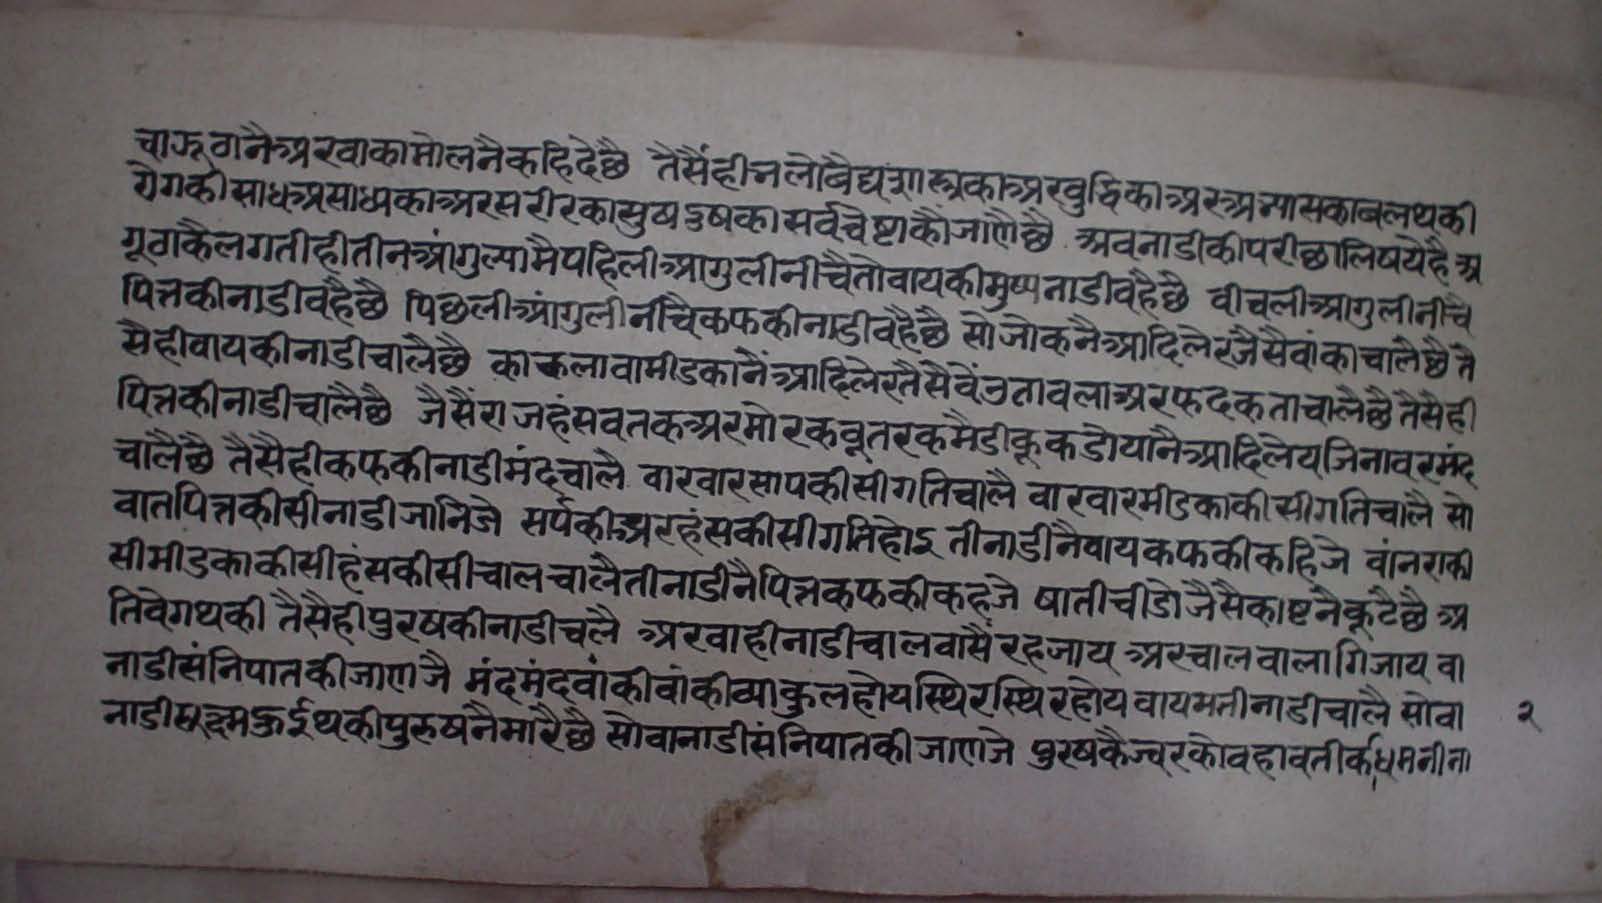 चारुगनैअरवाकामोलनैकहिदेछै तैसैंहीनलोबैद्यशास्त्रकाअरबुद्धिकाअरअभ्यासकाबलथकी
रोगकीसाधअसाध्यकाअरसरीरकासुषदुषकासर्वचेष्टाकौंजाणैछै अवनाडीकीपरीछालिषयेहैअ
गूठाकैलगतीहीतीनआंगुल्यामैपहिलीआगुलीनीचैतोवायकीमुष्यनाडीवहैछै वीचलीआगुलीनीचै
पित्तकीनाडीवहैछै पिछलीआंगुलीनीचैकफकीनाडीवहैछै सोजोकनैआदिलेरजैसैवांकाचालैछैतै
सैहीवायकीनाडीचालैछै काकलावामीडकानैंआदिलेरतैसैवेंउतावलाअरफदकताचालैछैतैसैही
पित्तकीनाडीचालैछै जैसैंराजहंसवतकअरमोरकबूतरकमैडीकूकडोयानैआदिलेयजिनावरमंद
चालैंछै तैसैहीकफकीनाडीमंदचालै वारवारसापकीसीगतिचालै वारवारमीडकाकीसीगतिचालै सो
वातपित्तकीसीनाडीजानिजे सर्पकीअरहंसकीसीगतिहोइ तीनाडीनैवायकफकीकहिजे वांनराकी
सीमींडकाकीसीहंसकीसीचालचालैतीनाडीनैपित्तकफकीकहजे षातीचीडोजैसैकाष्टनैकूटैछै अ
तिवेगथकी तैसैहीपुरषकीनाडीचलै अरवाहीनाडीचालवासैंरहजाय अरचालवालागिजाय वा
नाडीसंनिपातकीजाणजै मंदमंदवांकीवांकीव्याकुलहोयस्थिरस्थिरहोय वायमतीनाडीचालै सोवा
नाडीसूक्ष्मऊईथकीपुरुषनैमारैछै सोवानाडीसंनिपातकीजाणजे पुरषकैज्वरकोवहावतीकैधमनीना
२